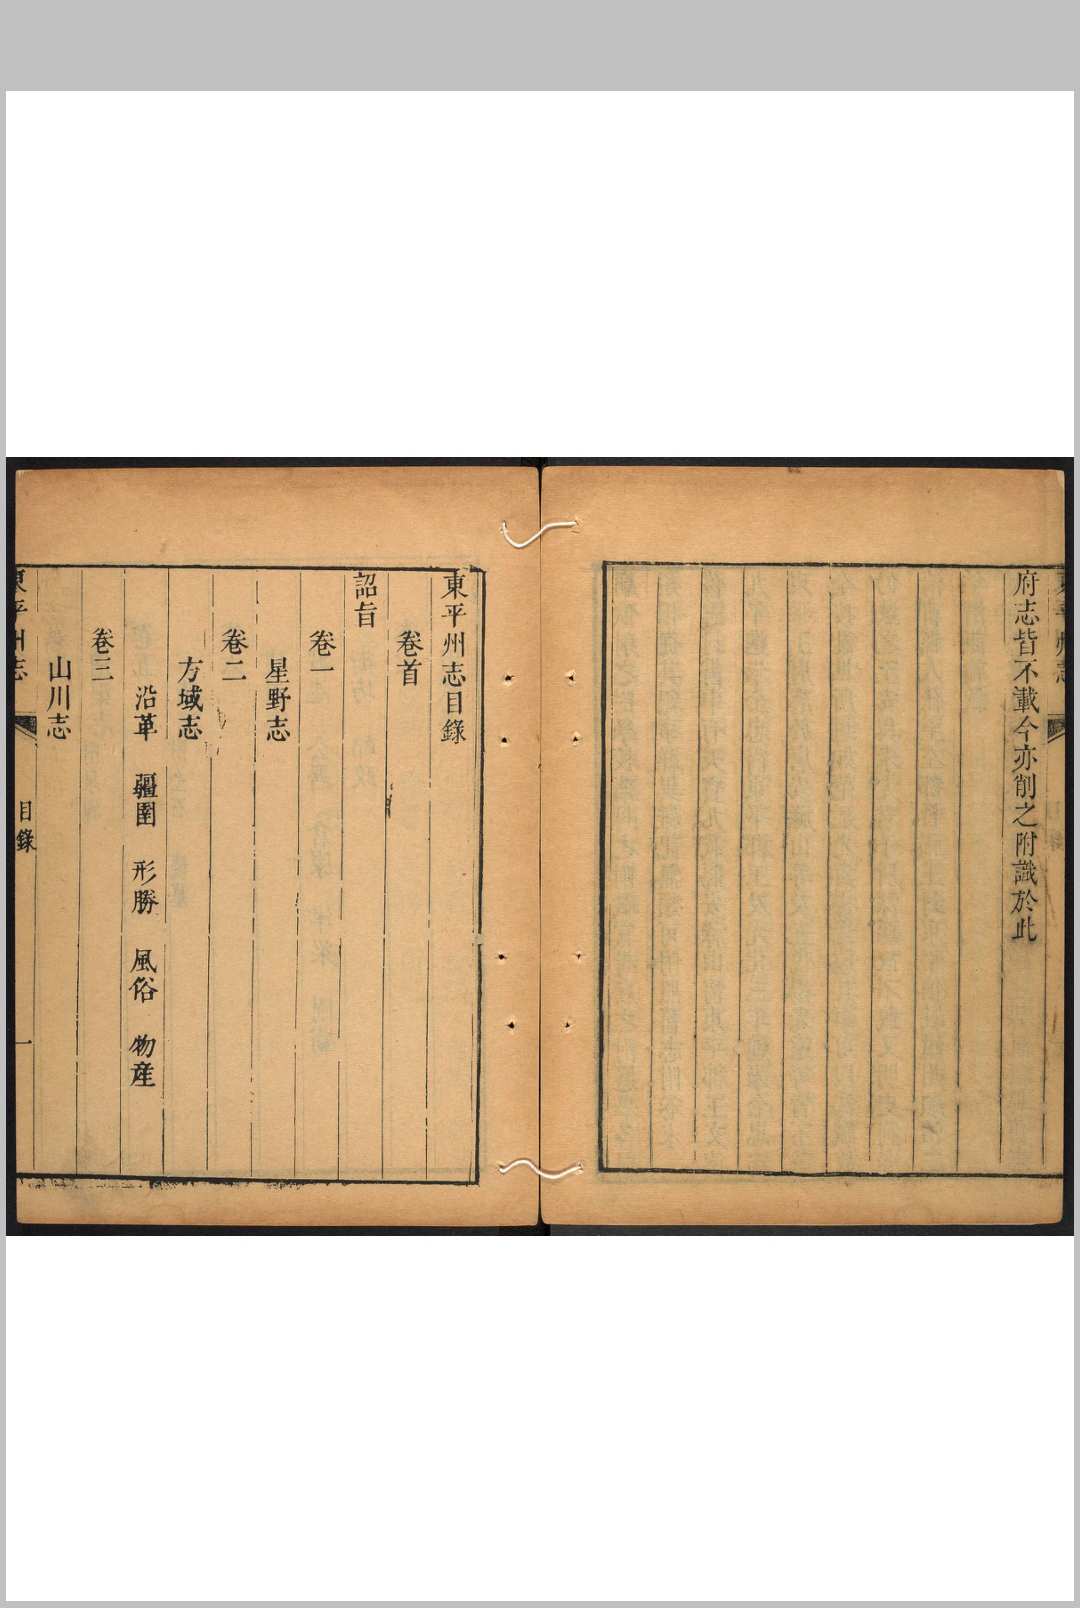 府志皆不載今亦削之附識於此
東平州志目錄
卷首
詔旨
卷一
星野志
卷二
方域志
沿革 疆圉 形勝 風俗 物産
卷三
山川志
東平州志 目錄 一